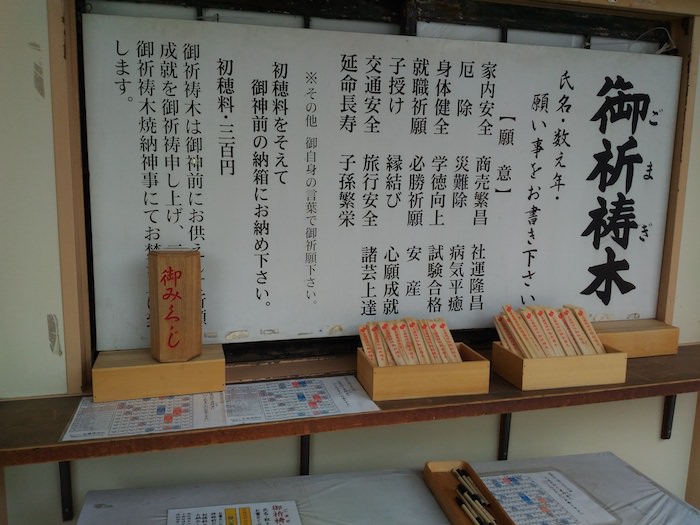 御祈祷木
ごまぎ
氏名・数え年・
願い事をお書き下さい
【願意】
家内安全 商売繁昌 社運隆昌
厄除 災難除 病気平癒
身体健全 学徳向上 試験合格
就職祈願 必勝祈願 安産
子授け 縁結び 心願成就
交通安全 旅行安全 諸芸上達
延命長寿 子孫繁栄
※その他 御自身の言葉で御祈願下さい。
初穂料をそえて
御神前の納箱にお納め下さい。
初穂料・三百円
御祈祷木は御神前にお供え
成就を御祈祷申し上げ、
御祈祷木焼納神事にてお焚
します。
御みくじ
御祈祷木